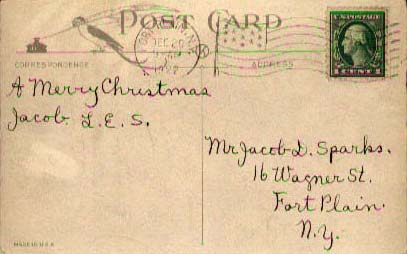 POST CARD
CORRESPONDENCE
ADDRESS
DEC 20
1 CENT 1
A Merry Christmas
Jacob. L. E. S.
Mr Jacob D. Sparks.
16 Wagner St.
Fort Plain.
N. Y.
MADE IN U.S.A.